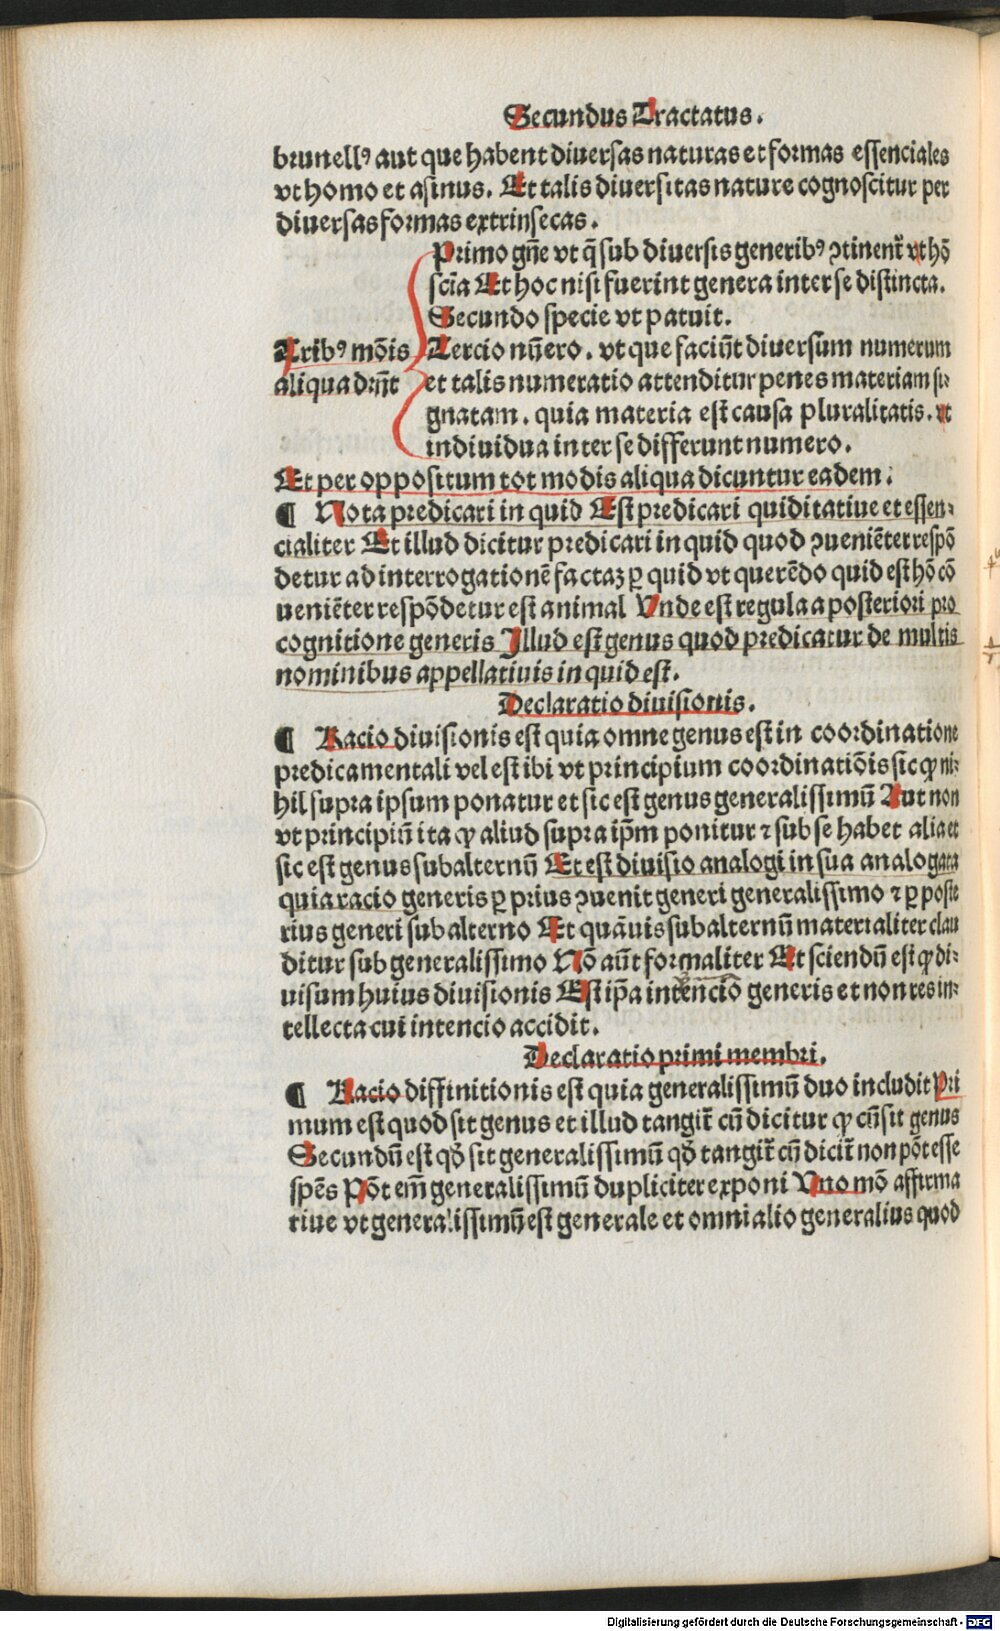 Secundus Tractatus.
brunellꝰ aut que habent diuersas naturas et formas essenciales
vt homo et asinus. Et talis diuersitas nature cognoscitur per
diuersas formas extrinsecas.
Primo gn̄e vt q̄ sub diuersis generibꝰ ꝯtinent᷑ vt hō
scīa Et hoc nisi fuerint genera inter se distincta.
Secundo specie vt patuit.
Tribꝰ mōis
aliqua dn̄r̄t
Tercio nūero. vt que faciūt diuersum numerum
et talis numeratio attenditur penes materiam si⸗
gnatam. quia materia est causa pluralitatis. vt
indiuidua inter se differunt numero.
Et per oppositum tot modis aliqua dicuntur eadem.
¶ Nota predicari in quid Est predicari quiditatiue et essen⸗
cialiter Et illud dicitur predicari in quid quod ꝯueniēter respō
detur ad interrogationē factaꝫ ꝑ quid vt querēdo quid est hō cō
ueniēter respōdetur est animal Vnde est regula a posteriori pro
cognitione generis Illud est genus quod predicatur de multis
nominibus appellatiuis in quid est.
Declaratio diuisionis.
¶ Racio diuisionis est quia omne genus est in coordinatione
predicamentali vel est ibi vt principium coordinatiōis sic ꝙ ni⸗
hil supra ipsum ponatur et sic est genus generalissimū Aut non
vt principiū ita ꝙ aliud supra ip̄m ponitur ⁊ sub se habet alia et
sic est genus subalternū Et est diuisio analogi in sua analogata
quia racio generis ꝑ prius ꝯuenit generi generalissimo ⁊ ꝑ poste
rius generi subalterno Et quāuis subalternū materialiter clau
ditur sub generalissimo Nō aūt formaliter Et sciendū est ꝙ di⸗
uisum huius diuisionis Est ip̄a intencio generis et non res in⸗
tellecta cui intencio accidit.
Declaratio primi membri.
¶ Racio diffinitionis est quia generalissimū duo includit Pri
mum est quod sit genus et illud tangit᷑ cū dicitur ꝙ cū sit genus
Secundū est qd̄ sit generalissimū qd̄ tangit᷑ cū dicit᷑ non pōt esse
spēs Pōt em̄ generalissimū dupliciter exponi Vno mō affirma
tiue vt generalissimū est generale et omni alio generalius quod
Digitalisierung gefördert durch die Deutsche Forschungsgemeinschaft - DFG